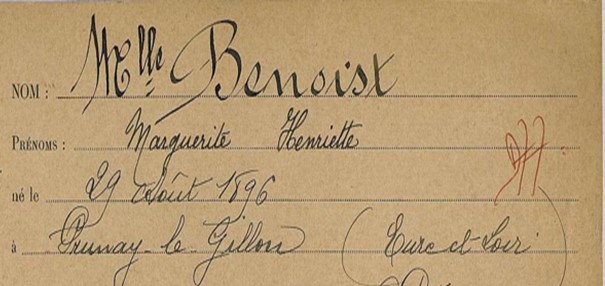 NOM : Mlle Benoist
PRÉNOMS : Marguerite Henriette
né le 29 Août 1896
à Prunay-le Gillon (Eure et Loir)